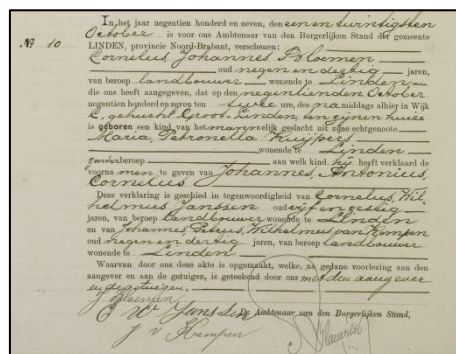 In het jaar negentien honderd en zeven, den een en twintigsten
October is voor ons Ambtenaar van den Burgerlijken Stand der gemeente
No 10
LINDEN, provincie Noord-Brabant, verschenen:
Cornelius Johannes Bloemen
oud negen en dertig jaren,
van beroep landbouwer wonende te Linden
die ons heeft aangegeven, dat op den negentienden October
negentien honderd en zeven ten twee ure, des na middags alhier in Wijk
C, gehucht Groot-Linden, ten zijnen huize
is geboren een kind van het mannelijk geslacht uit zijne echtgenoote
Maria, Petronella Kuijpers
wonende te Linden
zonder beroep aan welk kind hij heeft verklaard de
voornamen te geven van Johannes, Antonius,
Cornelius
Deze verklaring is geschied in tegenwoordigheid van Cornelius, Wil-
helmus Janssen oud vijf en zestig
jaren, van beroep landbouwer wonende te Linden
en van Johannes Petrus, Wilhelmus van Kempen
oud negen en dertig jaren, van beroep landbouwer
wonende te Linden
Waarvan door ons deze akte is opgemaakt, welke, na gedane voorlezing aan den
aangever en aan de getuigen, is geteekend door ons met den aangever
en de getuigen.
J Bloemen
De Ambtenaar van den Burgerlijken Stand,
C W Janssen
J v Kempen